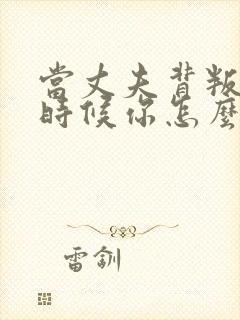 當丈夫背叛
時候你怎麼
雷釧